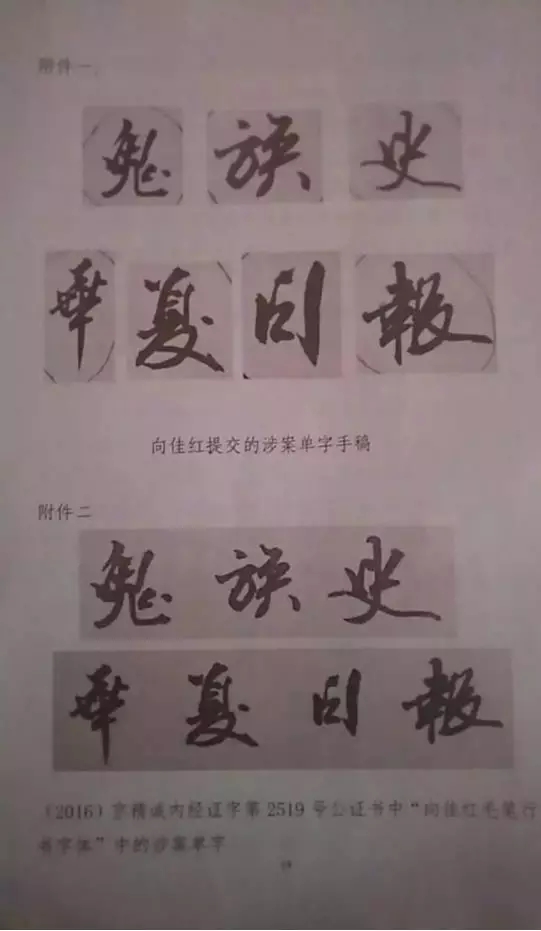 附件一、
鬼族史
華夏日報
向佳红提交的涉案单字手稿
附件二
鬼族史
華夏日報
（2016）京精诚内经证字第2519号公证书中“向佳红毛笔行
书字体”中的涉案单字